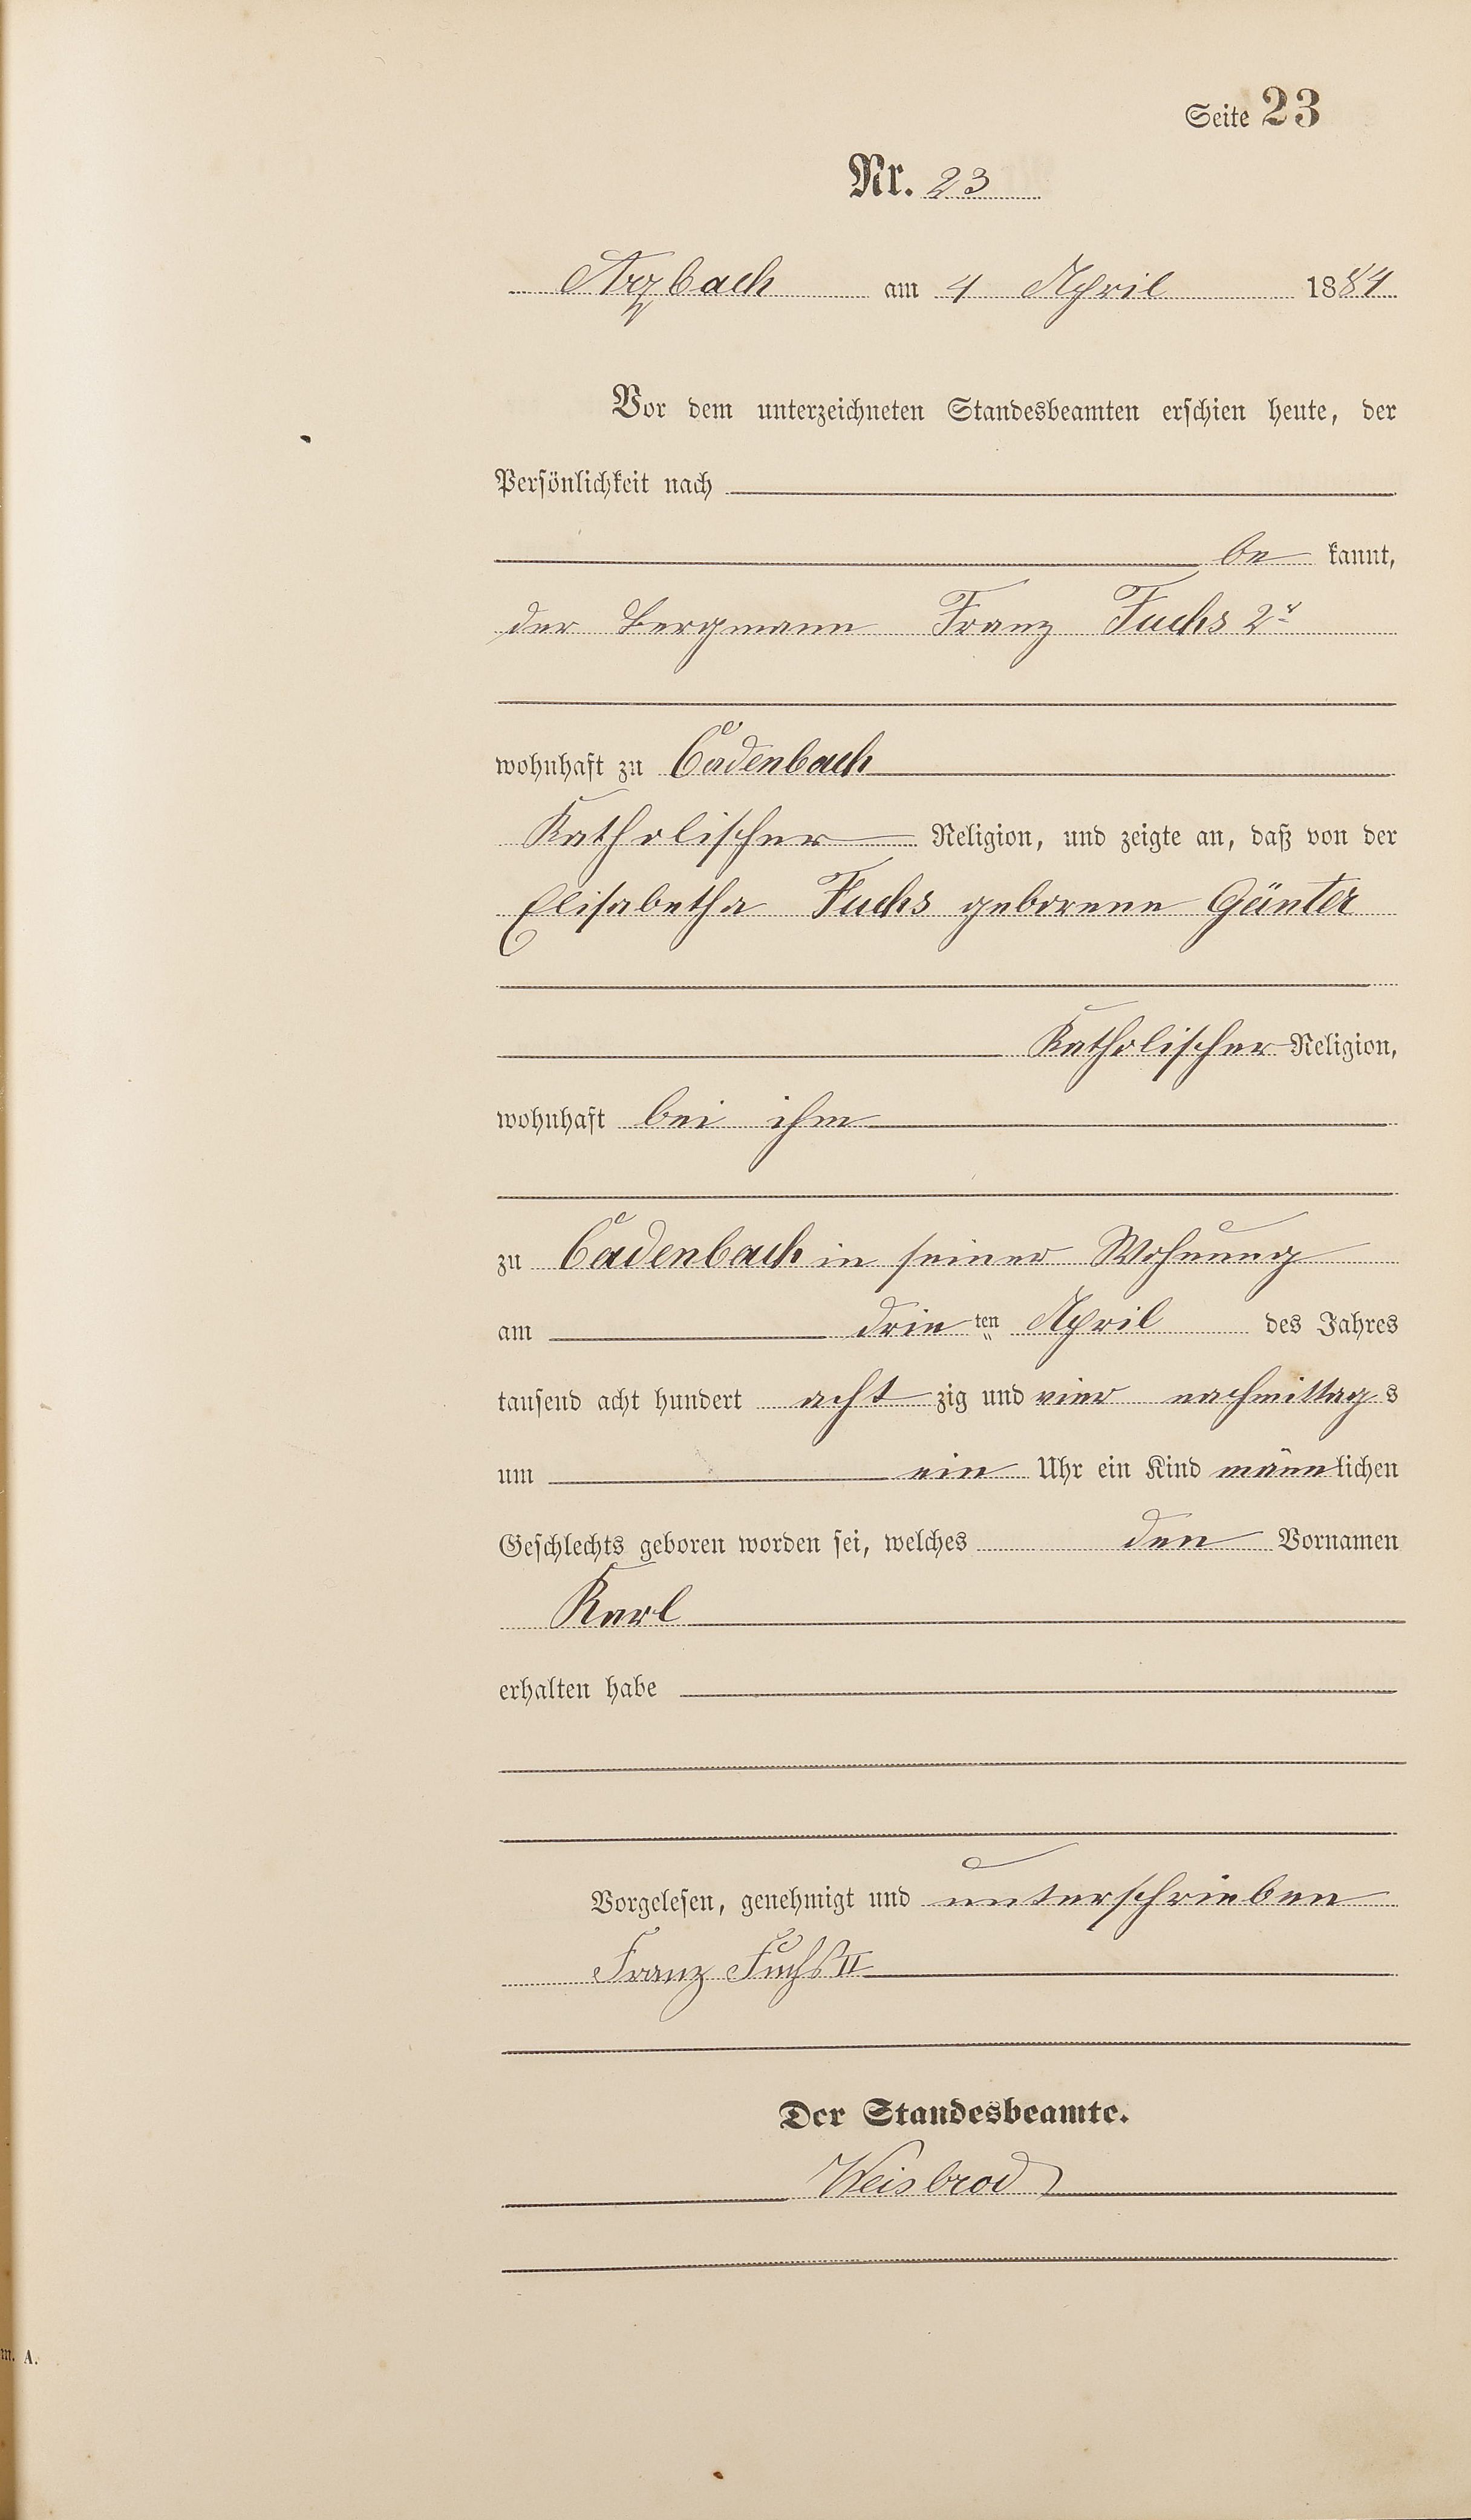 Seite 23
Nr. 23
Arzbach am 4 April 1884
Vor dem unterzeichneten Standesbeamten erschien heute, der
Persönlichkeit nach
be kannt,
der Bergmann Franz Fuchs 2r
wohnhaft zu Cadenbach
Katholischer Religion, und zeigte an, daß von der
Elisabetha Fuchs geborene Günter
Katholischer Religion,
wohnhaft bei ihm
zu Cadenbach in seiner Wohnung
am drei ten April des Jahres
tausend acht hundert acht zig und vier nachmittag s
um ein Uhr ein Kind männlichen
Geschlechts geboren worden sei, welches den Vornamen
Karl
erhalten habe
Vorgelesen, genehmigt und unterschrieben
Franz Fuchs II
Der Standesbeamte.
Weisbrod
m. A.